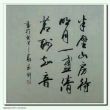 半壁山房待
明月一盏清
茗酬知音